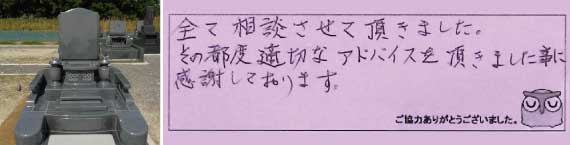 全て相談させて頂きました。
その都度適切なアドバイスを頂きました事に
感謝しております。
ご協力ありがとうございました。